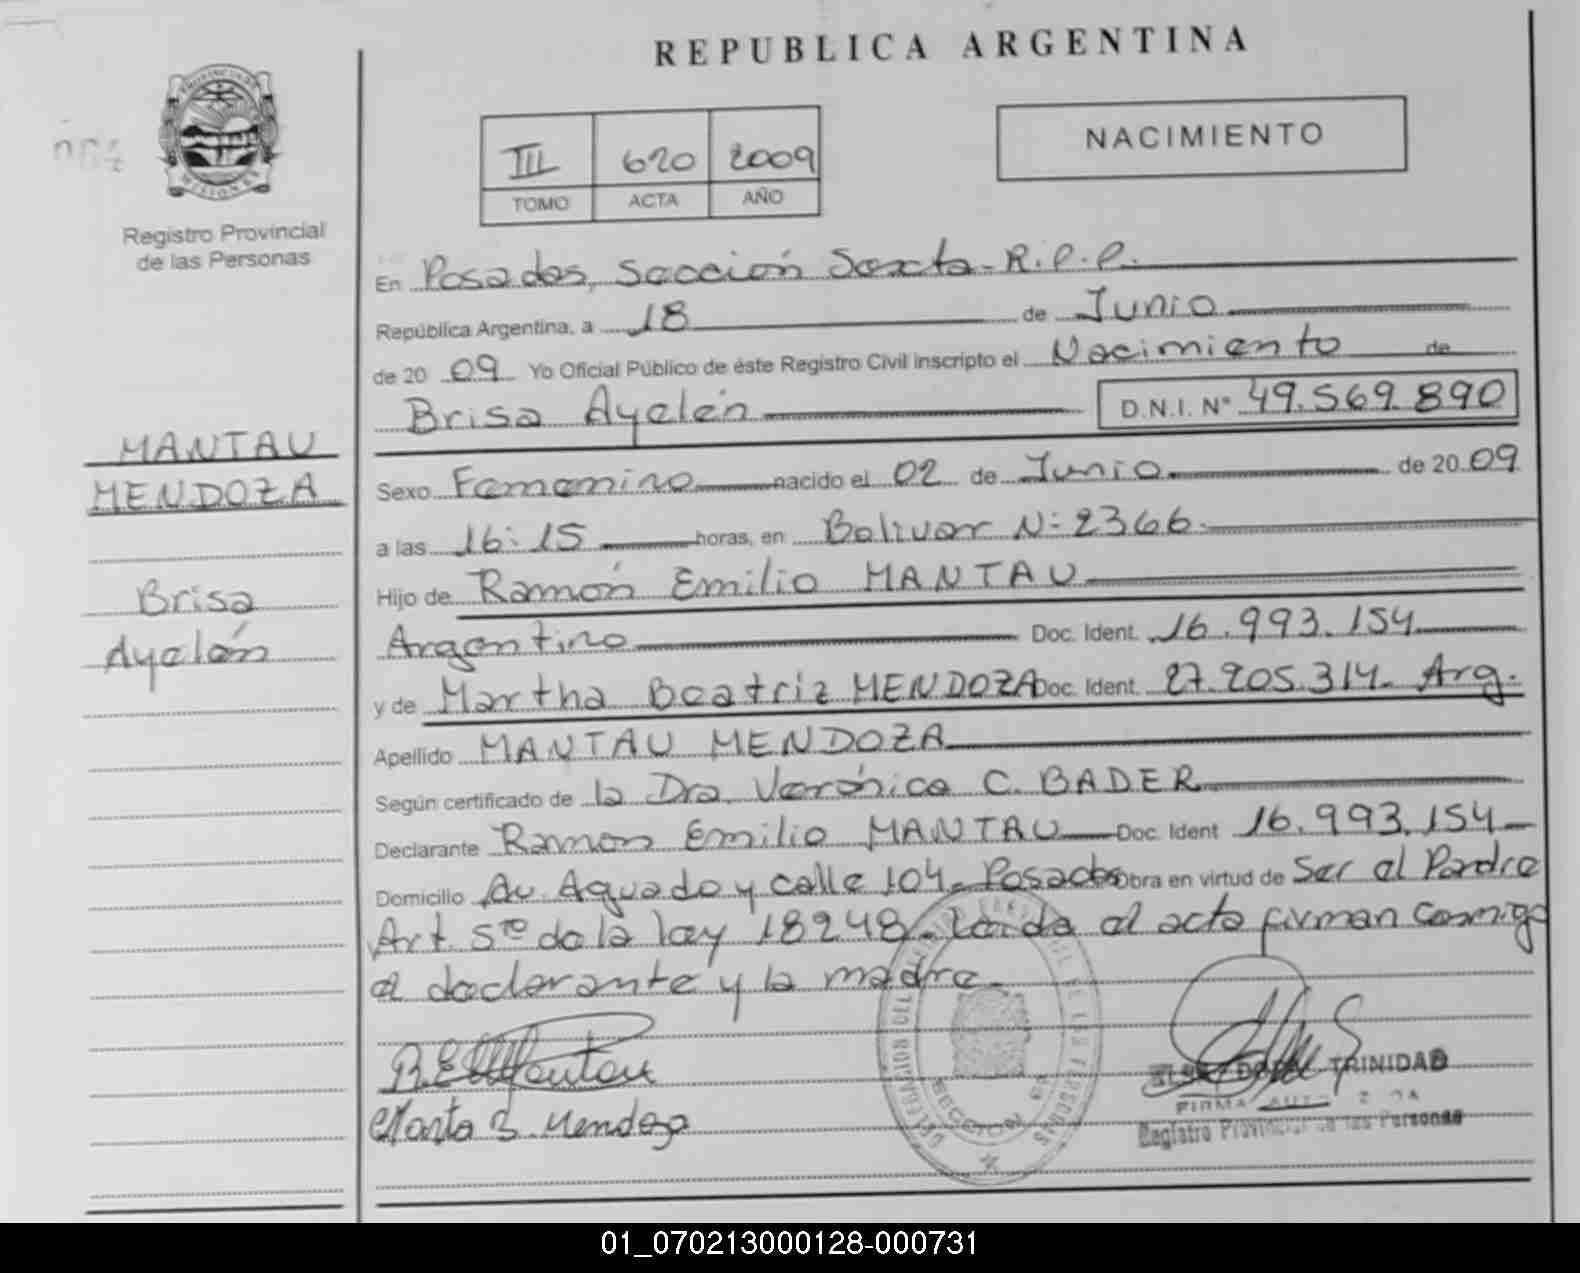 REPUBLICA ARGENTINA
PROVINCIA DE
MISIONES
Registro Provincial
de las Personas
III 620 2009
TOMO ACTA AÑO
NACIMIENTO
En Posadas, Sección Sexta - R.P.P.
República Argentina, a 18 de Junio
de 20 09 Yo Oficial Público de éste Registro Civil inscripto el Nacimiento de
Brisa Ayelén D.N.I. N° 49.569.890
MANTAU
MENDOZA
Brisa
Ayelén
Sexo Femenino nacido el 02 de Junio de 20 09
a las 16:15 horas, en Bolivar N: 2366.
Hijo de Ramón Emilio MANTAU
Argentino Doc. Ident. 16.993.154
y de Martha Beatriz MENDOZA Doc. Ident. 27.205.314. Arg.
Apellido MANTAU MENDOZA
Según certificado de la Dra. Verónica C. BADER
Declarante Ramon Emilio MANTAU Doc. Ident 16.993.154
Domicilio Av. Aguado y calle 104. Posadas Obra en virtud de Ser el Padre
Art. 5to de la ley 18248. Leida el acta firman conmigo
el declarante y la madre.
R.E. Mantau
Marta B. Mendoza
DELEGACION DEL REGISTRO PROVINCIAL DE LAS PERSONAS
SECCION 6a
TRINIDAD
FIRMA
Registro Provincial de las Personas
01_070213000128-000731